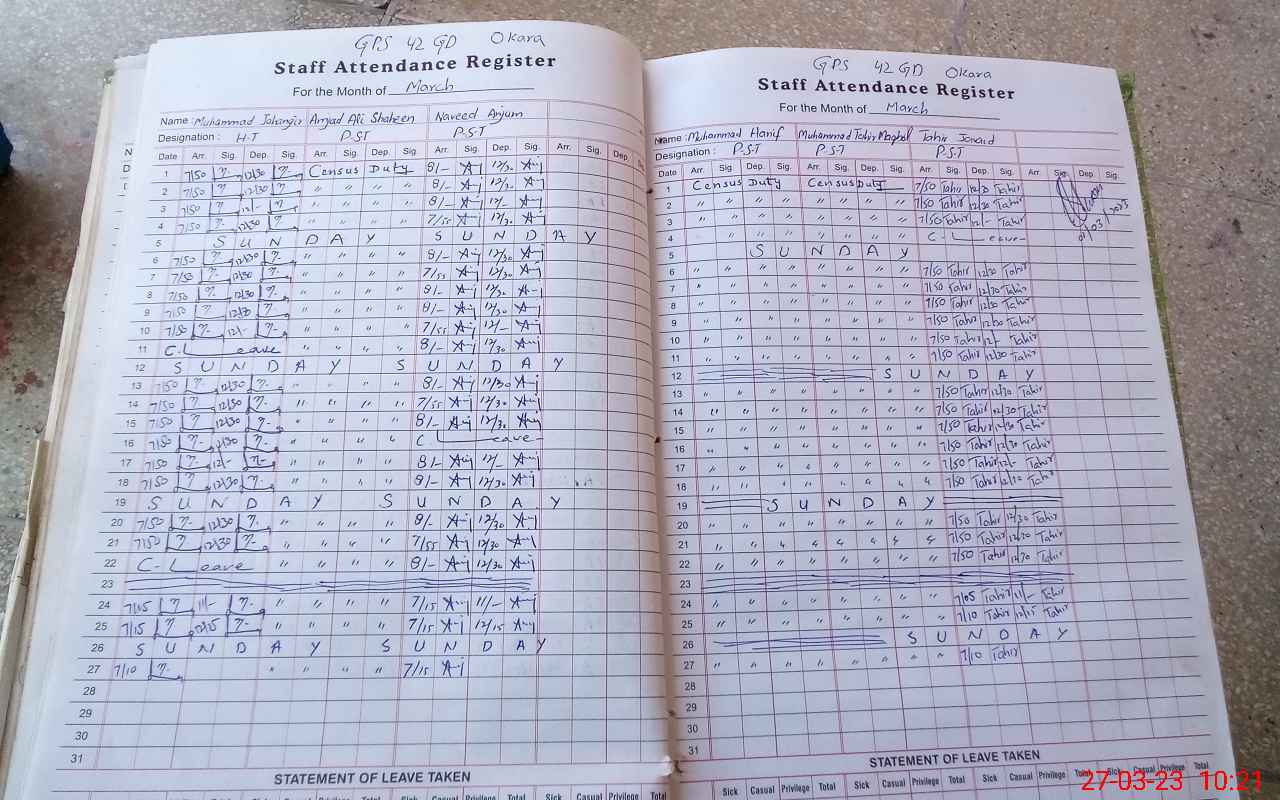 GPS 42 GD Okara
Staff Attendance Register
For the Month of March
Name : Muhammad Jahangir Amjad Ali Shaheen Naveed Anjum
Designation : H-T P-S-T P-S-T
Date Arr. Sig. Dep. Sig. Arr. Sig. Dep. Sig. Arr. Sig. Dep. Sig. Arr. Sig. Dep. Sig.
1 7/50 12/30 Census Duty 8/- 12/30
2 7/50 12/30 " " " " 8/- 12/30
3 7/50 12/- " " " " 8/- 12/-
4 7/50 12/30 " " " " 7/55 12/30
5 S U N D A Y S U N D A Y
6 7/50 12/30 " " " " 8/- 12/30
7 7/50 12/30 " " " " 7/55 12/30
8 7/50 12/30 " " " " 8/- 12/30
9 7/50 12/30 " " " " 8/- 12/30
10 7/50 12/- " " " " 7/55 12/-
11 C-Leave " " " " 8/- 12/30
12 S U N D A Y S U N D A Y
13 7/50 12/30 " " " " 8/- 12/30
14 7/50 12/30 " " " " 7/55 12/30
15 7/50 12/30 " " " " 8/- 12/30
16 7/50 12/30 " " " " C-Leave
17 7/50 12/- " " " " 8/- 12/-
18 7/50 12/30 " " " " 8/- 12/30
19 S U N D A Y S U N D A Y
20 7/50 12/30 " " " " 8/- 12/30
21 7/50 12/30 " " " " 7/55 12/30
22 C-Leave " " " " 8/- 12/30
23
24 7/05 11/- " " " " 7/15 11/-
25 7/15 12/15 " " " " 7/15 12/15
26 S U N D A Y S U N D A Y
27 7/10 " " " " 7/15
28
29
30
31
STATEMENT OF LEAVE TAKEN
Sick Casual Privilege Total Sick Casual Privilege Total
GPS 42 GD Okara
Staff Attendance Register
For the Month of March
Name : Muhammad Hanif Muhammad Tahir Maqbol Tahir Javaid
Designation : P-S-T P-S-T P-S-T
Date Arr. Sig. Dep. Sig. Arr. Sig. Dep. Sig. Arr. Sig. Dep. Sig. Arr. Sig. Dep. Sig.
1 Census Duty Census Duty 7/50 Tahir 12/30 Tahir
2 " " " " " " " " 7/50 Tahir 12/30 Tahir
3 " " " " " " " " 7/50 Tahir 12/- Tahir
4 " " " " " " " " C-Leave
5 S U N D A Y
6 " " " " " " " " 7/50 Tahir 12/30 Tahir
7 " " " " " " " " 7/50 Tahir 12/30 Tahir
8 " " " " " " " " 7/50 Tahir 12/30 Tahir
9 " " " " " " " " 7/50 Tahir 12/30 Tahir
10 " " " " " " " " 7/50 Tahir 12/- Tahir
11 " " " " " " " " 7/50 Tahir 12/30 Tahir
12 S U N D A Y
13 " " " " " " " " 7/50 Tahir 12/30 Tahir
14 " " " " " " " " 7/50 Tahir 12/30 Tahir
15 " " " " " " " " 7/50 Tahir 12/30 Tahir
16 " " " " " " " " 7/50 Tahir 12/30 Tahir
17 " " " " " " " " 7/50 Tahir 12/- Tahir
18 " " " " " " " " 7/50 Tahir 12/30 Tahir
19 S U N D A Y
20 " " " " " " " " 7/50 Tahir 12/30 Tahir
21 " " " " " " " " 7/50 Tahir 12/30 Tahir
22 " " " " " " " " 7/50 Tahir 12/30 Tahir
23
24 " " " " " " " " 7/05 Tahir 11/- Tahir
25 " " " " " " " " 7/10 Tahir 12/15 Tahir
26 S U N D A Y
27 " " " " " " " " 7/10 Tahir
28
29
30
31
STATEMENT OF LEAVE TAKEN
Sick Casual Privilege Total Sick Casual Privilege Total Sick Casual Privilege Total
27-03-23 10:21